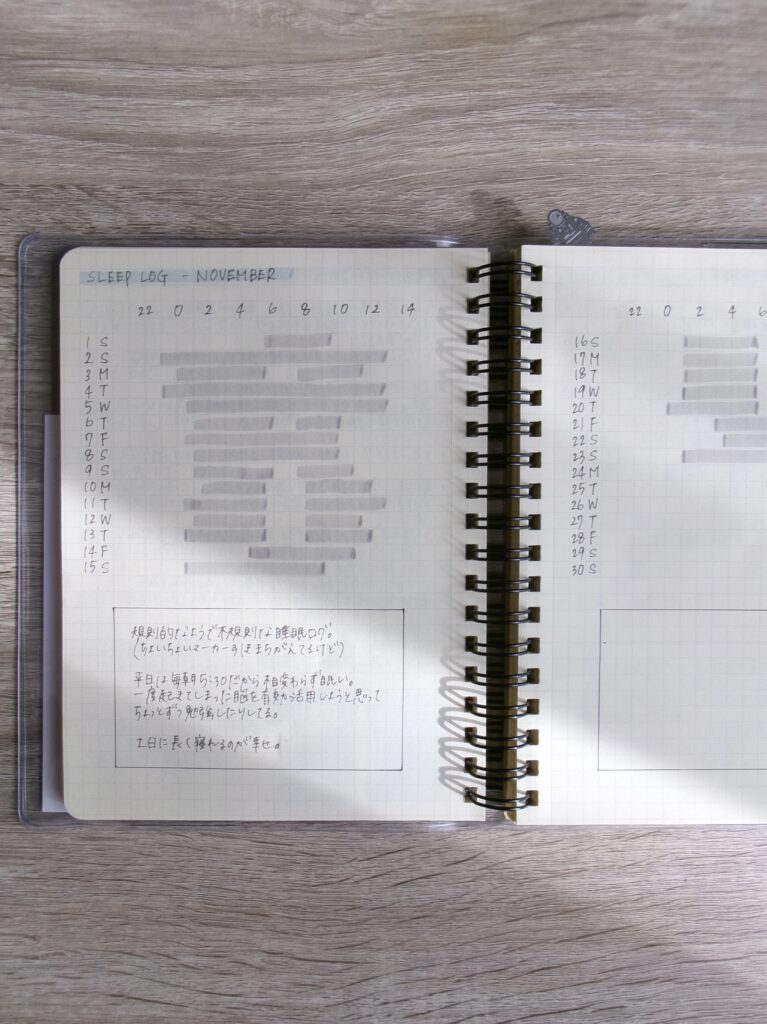 SLEEP LOG - NOVEMBER
22 0 2 4 6 8 10 12 14
1 S
2 S
3 M
4 T
5 W
6 T
7 F
8 S
9 S
10 M
11 T
12 W
13 T
14 F
15 S
規則的なようで不規則な睡眠ログ。
(ちょいちょいマーカー引きまちがえてるけど)
平日は毎朝5:30だから相変わらず眠い。
一度起きてしまった脳を有効活用しようと思って
ちょっとずつ勉強したりしてる。
土日に長く寝れるのが幸せ。
22 0 2 4 6
16 S
17 M
18 T
19 W
20 T
21 F
22 S
23 S
24 M
25 T
26 W
27 T
28 F
29 S
30 S